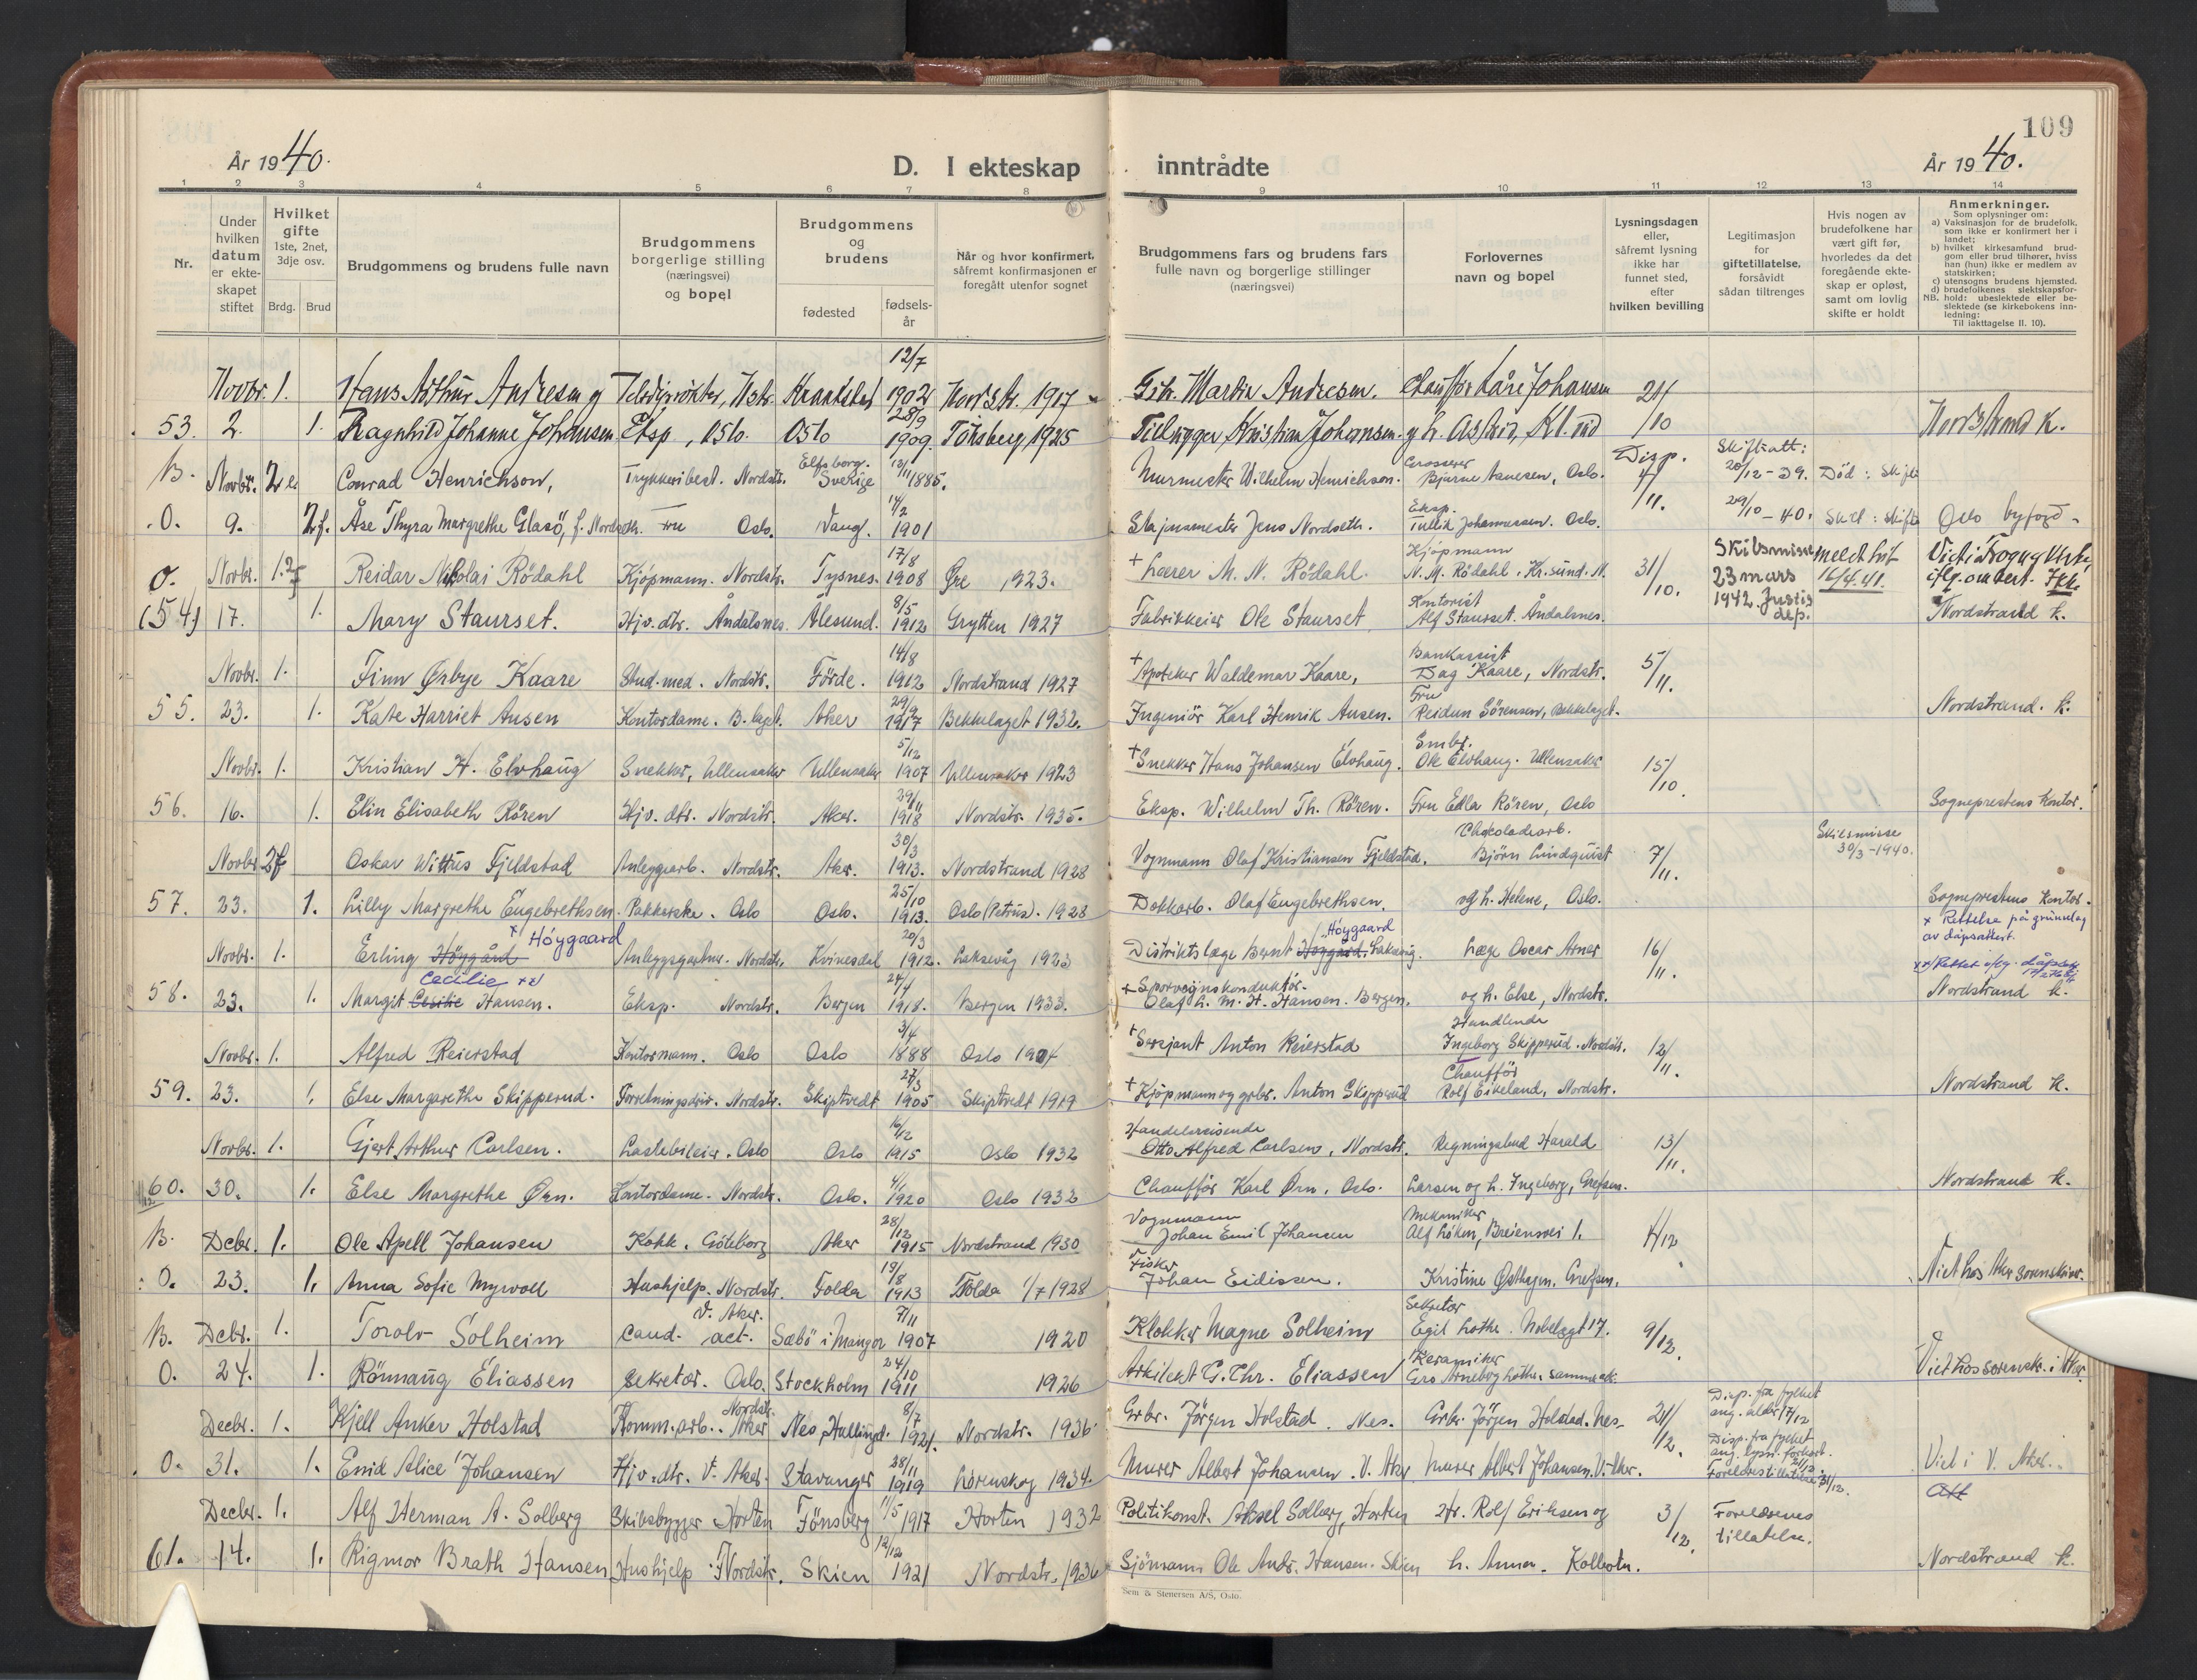 109
År 1940.
D. I ekteskap inntrådte
År 1940.
1 2 3 4 5 6 7 8 9 10 11 12 13 14
Nr.
Under hvilken datum er ekteskapet stiftet
Hvilket gifte 1ste, 2net, 3dje osv.
Brdg. Brud
Brudgommens og brudens fulle navn
Brudgommens borgerlige stilling (næringsvei) og bopel
Brudgommens og brudens
fødested
fødsels-år
Når og hvor konfirmert, såfremt konfirmasjonen er foregått utenfor sognet
Brudgommens fars og brudens fars fulle navn og borgerlige stillinger (næringsvei)
Forlovernes navn og bopel
Lysningsdagen eller, såfremt lysning ikke har funnet sted, efter hvilken bevilling
Legitimasjon for giftetillatelse, forsåvidt sådan tiltrenges
Hvis nogen av brudefolkene har vært gift før, hvorledes da det foregående ekteskap er opløst, samt om lovlig skifte er holdt
Anmerkninger.
Som oplysninger om:
a) Vaksinasjon for de brudefolk, som ikke er konfirmert her i landet;
b) hvilket kirkesamfund brudgom eller brud tilhører, hviss han (hun) ikke er medlem av statskirken;
c) utensogns brudens hjemsted.
d) brudefolkenes slektskapsforhold: ubeslektede eller beslektede (se kirkebokens innledning:
NB. Til iakttagelse II. 10).
12/7
Novbr. 1. Hans Arthur Andresen og 1902 Nordstr. 1917 Gbr. Martin Andresen. Chauffør Kåre Johansen 21/10
28/9
53. 2. 1. Ragnhild Johanne Johansen Eksp, Oslo. Oslo 1909. Tönsberg 1925 Kristian Johansen. Nordstrand k.
B. Novbr. 2 e. Conrad Henrichson, Trykkeribest. Nordstr. Elfsborg. Sverige 13/11 1885. Murmester Wilhelm Henrichson. Grosserer Bjarne Aanesen, Oslo. Disp. 7/11. Skifteatt: 20/12-39. Död: Skifte
O. 9. 2f. Åse Thyra Margrethe Glasö, f. Nordseth. Fru Oslo. Vang. 14/2 1901 Stasjonsmester Jens Nordseth. Eksp. Tullik Johannessen. Oslo. 29/10-40. Skilt: skifte Oslo byfogd.
O. Novbr. 1. 2f Reidar Nikolai Rödahl Kjöpmann. Nordstr. Tysnes. 17/8 1908 Øre 1923. + Lærer M. N. Rödahl. Kjöpmann N. M. Rödahl. Kr.sund. N. 31/10. Skilsmisse 23 mars 1942. Justis dep. meldt hit 16/4.41.
(54) 17. 1. Mary Staurset. Hjv. dtr. Åndalsnes. Ålesund. 8/5 1912 Grytten 1927 Fabrikkeier Ole Staurset Kontorist Alf Staurset. Åndalsnes. Nordstrand k.
Novbr. 1. Finn Ørbye Kaare Stud. med. Nordstr. Förde. 14/8 1912 Nordstrand 1927 + Apoteker Waldemar Kaare, Bankassist Dag Kaare, Nordstr. 5/11.
55. 23. 1. Kate Harriet Ausen Kontordame. B. laget. Aker 29/9 1917 Bekkelaget 1932. Ingeniör Karl Henrik Ausen. Fru Reidun Sörensen, Bekkelaget. Nordstrand. k.
Novbr. 1. Kristian H. Elvhaug Snekker, Ullensaker Ullensaker 5/12 1907 Ullensaker 1923 + Snekker Hans Johansen Elvhaug. Smbr. Ole Elvhaug. Ullensaker 15/10.
56. 16. 1. Elin Elisabeth Rören Hjv. dtr. Nordstr. Aker. 29/11 1918 Nordstr. 1935. Eksp. Wilhelm Th. Rören. Fru Edla Rören, Oslo Sogneprestens kontor.
Novbr. 2f Oskar Wittus Fjeldstad Anleggsarb. Nordstr. Aker. 30/3 1913. Nordstrand 1928 Vognmann Olaf Kristiansen Fjeldstad. Chocoladearb. Björn Lindquist 7/11. Skilsmisse 30/3-1940.
57. 23. 1. Lilly Margrethe Engebrethsen. Pakkerske. Oslo Oslo. 25/10 1913. Oslo (Petrus). 1928 Dokkarb. Olaf Engebrethsen. og h. Helene, Oslo. Sogneprestens kontor.
x Rettelse på grunnlag av dåpsattest.
Novbr. 1. Erling Höygård x Höygaard Anleggsgartner. Nordstr. Kvinesdal 20/3 1912. Laksevåg 1923 Distriktslæge Bernt Höygård. Höygaard Laksevåg. Læge Oscar Arner 16/11.
58. 23. 1. Margit Cesilie Cecilie xx Hansen. Eksp. Nordstr. Bergen 24/4 1918. Bergen 1933. + Sporvognskonduktör. Olaf L. M. H. Hansen. Bergen. og h. Else, Nordstr. Nordstrand k.
Novbr. 1. Alfred Reierstad Kontormann. Oslo Oslo 3/4 1888 Oslo 1904 + Sersjant Anton Reierstad Handlende Ingeborg Skipperud. Nordstr. 12/11.
59. 23. 1. Else Margarethe Skipperud. Forretningsdriv. Nordstr. Skiptvedt 27/3 1905 Skiptvedt 1919 + Kjöpmann og grbr. Anton Skipperud Chaufför Rolf Eikeland, Nordstr. Nordstrand k.
Novbr. 1. Gjert Arthur Carlsen. Lastebileier. Oslo Oslo 16/12 1915 Oslo 1932 Handelsreisende Otto Alfred Carlsen, Nordstr. Regningsbud Harald 13/11.
60. 30. 1. Else Margrethe Ørn. Kontordame. Nordstr. Oslo. 4/1 1920 Oslo 1932 Chaufför Karl Ørn, Oslo. Larsen og h. Ingeborg, Grefsen. Nordstrand k.
B. Debr. 1. Ole Apell Johansen Kokk. Göteborg Aker 28/12 1915 Nordstrand 1930 Vognmann Johan Emil Johansen Mekaniker Alf Löken, Breiensvei 1. 4/12.
O. 23. 1. Anna Sofie Myrvoll Hushjelp. Nordstr. Folda 19/8 1913 Folda 1/7 1928 Fisker Johan Eidissen. Kristine Østhagen. Grefsen. Viet hos Aker sorenskriver.
B. Debr. 1. Torolv Solheim cand. act. V. Aker. Sæbö i Manger 7/11 1907 1920 Klokker Magne Solheim Sekretær Egil Lothe. Nobelsgt 17. 9/12.
O. 24. 1. Rönnaug Eliassen sekretær. Oslo. Stockholm 24/10 1911 1926 Arkitekt G. Chr. Eliassen Keramiker Gro Arneberg Lothe. sammested. Viet hos sorenskr. i Aker
Decbr. 1. Kjell Anker Holstad Komm. arb. Nordstr. Aker Nes, Hallingd. 8/7 1921. Nordstr. 1936 Grbr. Jörgen Holstad. Nes. Grbr. Jörgen Holstad. Nes. 21/12. Disp. fra fylket ang. alder 17/12
O. 31. 1. Enid Alice Johansen Hjv. dtr. V. Aker. Stavanger 28/11 1919 Lörenskog 1934. Murer Albert Johansen. V. Aker Murer Albert Johansen. V. Aker. Disp. fra fylket ang. lysn. forkort. 21/12. Foreldrestillatelse 31/12. Viet i V. Aker.
Decbr. 1. Alf Herman A. Solberg Skibsbygger Horten Tönsberg 11/5 1917 Horten 1932 Politikonst. Aksel Solberg, Horten Hr. Rolf Eriksen og 3/12. Foreldrenes tillatelse.
61. 14. 1. Rigmor Brath Hansen Hushjelp. Nordstr. Skien 12/12 1921 Nordstr. 1936 Sjömann Ole Andr. Hansen. Skien h. Anna. Kolbotn. Nordstrand k.
Sem & Stenersen A/S, Oslo.